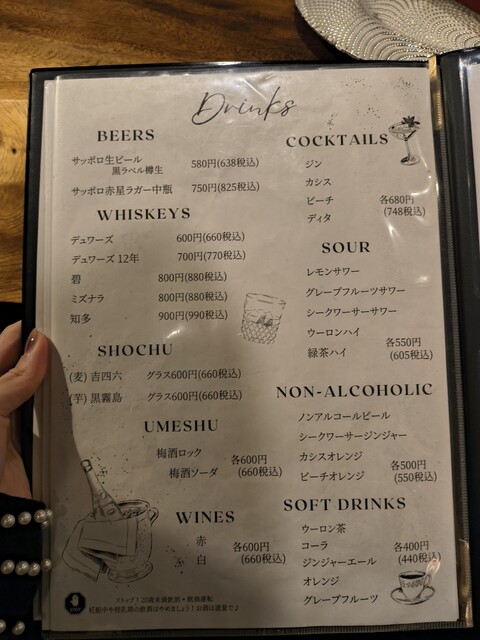 Drinks
BEERS
サッポロ生ビール
黒ラベル樽生 580円(638税込)
サッポロ赤星ラガー中瓶 750円(825税込)
WHISKEYS
デュワーズ 600円(660税込)
デュワーズ 12年 700円(770税込)
碧 800円(880税込)
ミズナラ 800円(880税込)
知多 900円(990税込)
SHOCHU
(麦) 吉四六 グラス600円(660税込)
(芋) 黒霧島 グラス600円(660税込)
UMESHU
梅酒ロック
梅酒ソーダ
各600円
(660税込)
WINES
赤
白
各600円
(660税込)
ストップ!20歳未満飲酒・飲酒運転
妊娠中や授乳期の飲酒はやめましょう!お酒は適量で♪
COCKTAILS
ジン
カシス
ピーチ
ディタ
各680円
(748税込)
SOUR
レモンサワー
グレープフルーツサワー
シークワーサーサワー
ウーロンハイ
緑茶ハイ
各550円
(605税込)
NON-ALCOHOLIC
ノンアルコールビール
シークワーサージンジャー
カシスオレンジ
ピーチオレンジ
各500円
(550税込)
SOFT DRINKS
ウーロン茶
コーラ
ジンジャーエール
オレンジ
グレープフルーツ
各400円
(440税込)